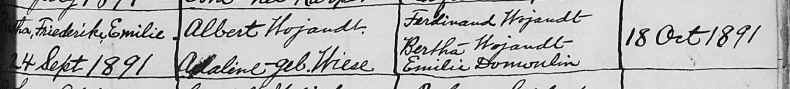 Friederike, Emilie. Albert Wojandt. Ferdinand Wojandt
Bertha Wojandt 18 Oct 1891
24 Sept 1891 Adaline geb. Wiese Emilie Domoulin